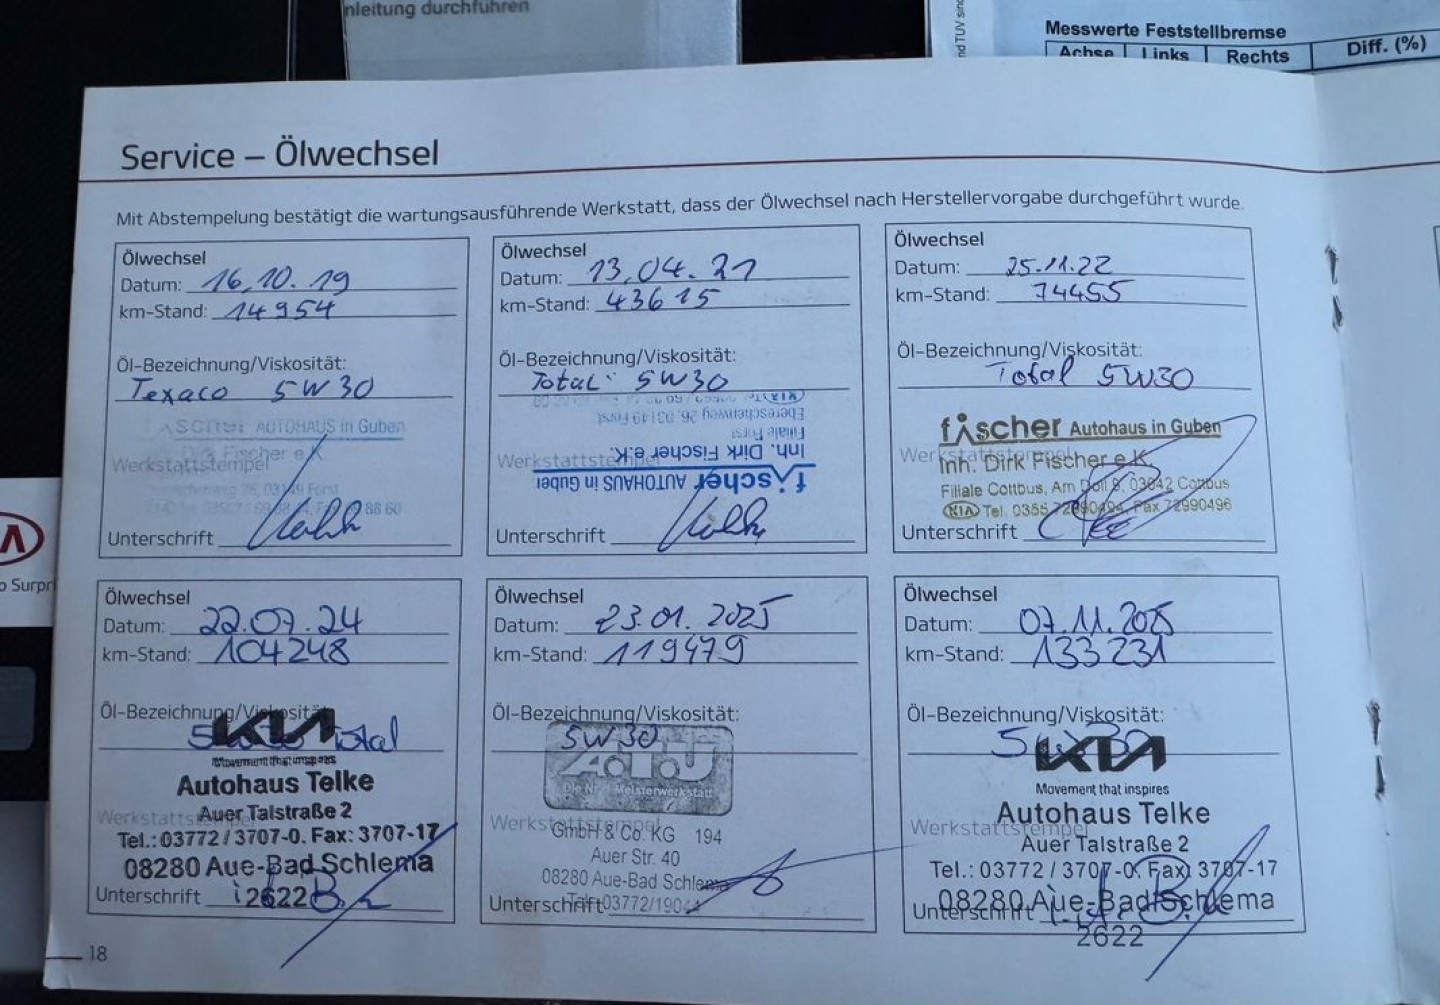 nleitung durchführen
nd TÜV sind
Messwerte Feststellbremse
Achse Links Rechts Diff. (%)
Service – Ölwechsel
Mit Abstempelung bestätigt die wartungsausführende Werkstatt, dass der Ölwechsel nach Herstellervorgabe durchgeführt wurde.
Ölwechsel
Datum: 16.10.19
km-Stand: 14954
Öl-Bezeichnung/Viskosität:
Texaco 5W30
AUTOHAUS in Guben
Dirk Fischer e.K.
Werkstattstempel
03149 Forst
88 60
Unterschrift
Ölwechsel
Datum: 13.04.21
km-Stand: 43615
Öl-Bezeichnung/Viskosität:
Total 5W30
KIA
Eberescheweg 26, 03149 Forst
Filiale Forst
Inh. Dirk Fischer e.K.
Werkstattstempel
fischer AUTOHAUS in Guben
Unterschrift
Ölwechsel
Datum: 25.11.22
km-Stand: 74455
Öl-Bezeichnung/Viskosität:
Total 5W30
fischer Autohaus in Guben
Inh. Dirk Fischer e.K.
Filiale Cottbus, Am Doll 9, 03042 Cottbus
KIA Tel. 0355 72990494, Fax 72990496
Unterschrift
Surpr
Ölwechsel
Datum: 22.07.24
km-Stand: 104248
Öl-Bezeichnung/Viskosität:
Total
KIA
Movement that inspires
Autohaus Telke
Werkstattstempel
Auer Talstraße 2
Tel.: 03772 / 3707-0. Fax: 3707-17
08280 Aue-Bad Schlema
Unterschrift
2622
Ölwechsel
Datum: 23.01.2025
km-Stand: 119479
Öl-Bezeichnung/Viskosität:
5W30
A.T.U
Die Nr. 1 Meisterwerkstatt
Werkstattstempel
GmbH & Co. KG 194
Auer Str. 40
08280 Aue-Bad Schlema
Unterschrift
Tel. 03772/19044
Ölwechsel
Datum: 07.11.2025
km-Stand: 133231
Öl-Bezeichnung/Viskosität:
5W30
KIA
Movement that inspires
Autohaus Telke
Werkstattstempel
Auer Talstraße 2
Tel.: 03772 / 3707-0. Fax: 3707-17
08280 Aue-Bad Schlema
Unterschrift
2622
18